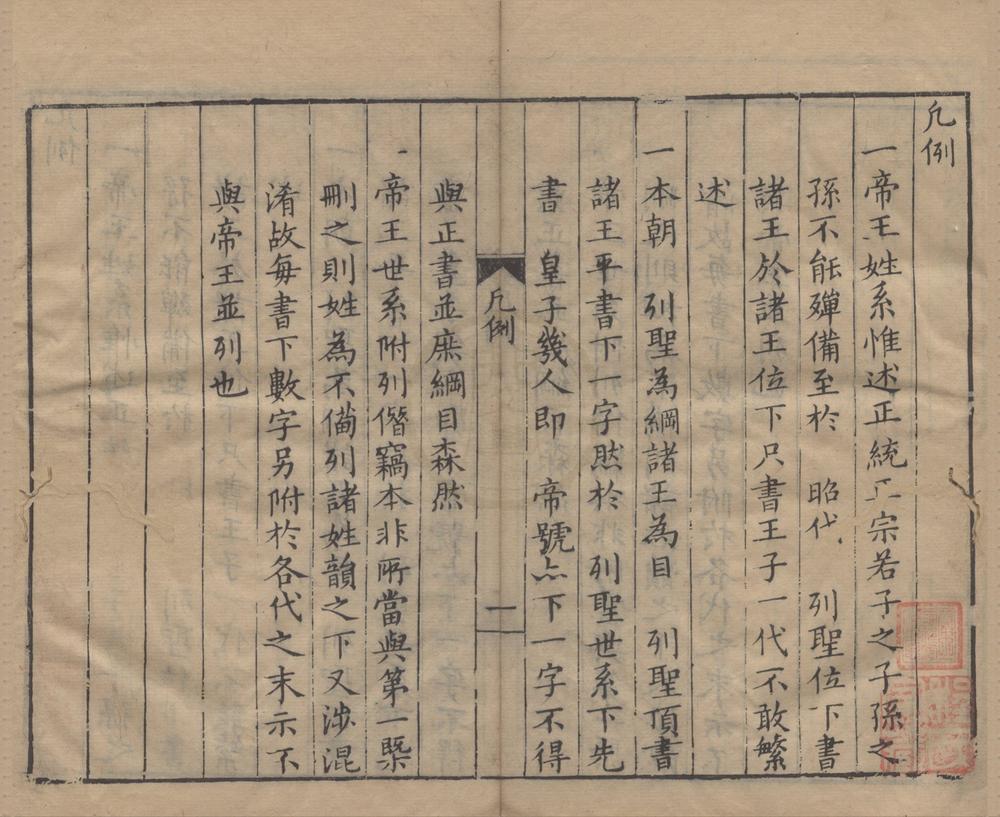 凡例
一帝王姓系惟述正統正宗若子之子孫之
孫不能殫備至於　昭代　列聖位下書
諸王於諸王位下只書王子一代不敢繁
述
一本朝　列聖為綱諸王為目　列聖頂書
諸王平書下一字然於　列聖世系下先
書　皇子幾人即　帝號亦下一字不得
凡例
一
與正書並庶綱目森然
一帝王世系附列僭竊本非所當與第一槩
刪之則姓為不備列諸姓韻之下又涉混
淆故每書下數字另附於各代之末示不
與帝王並列也